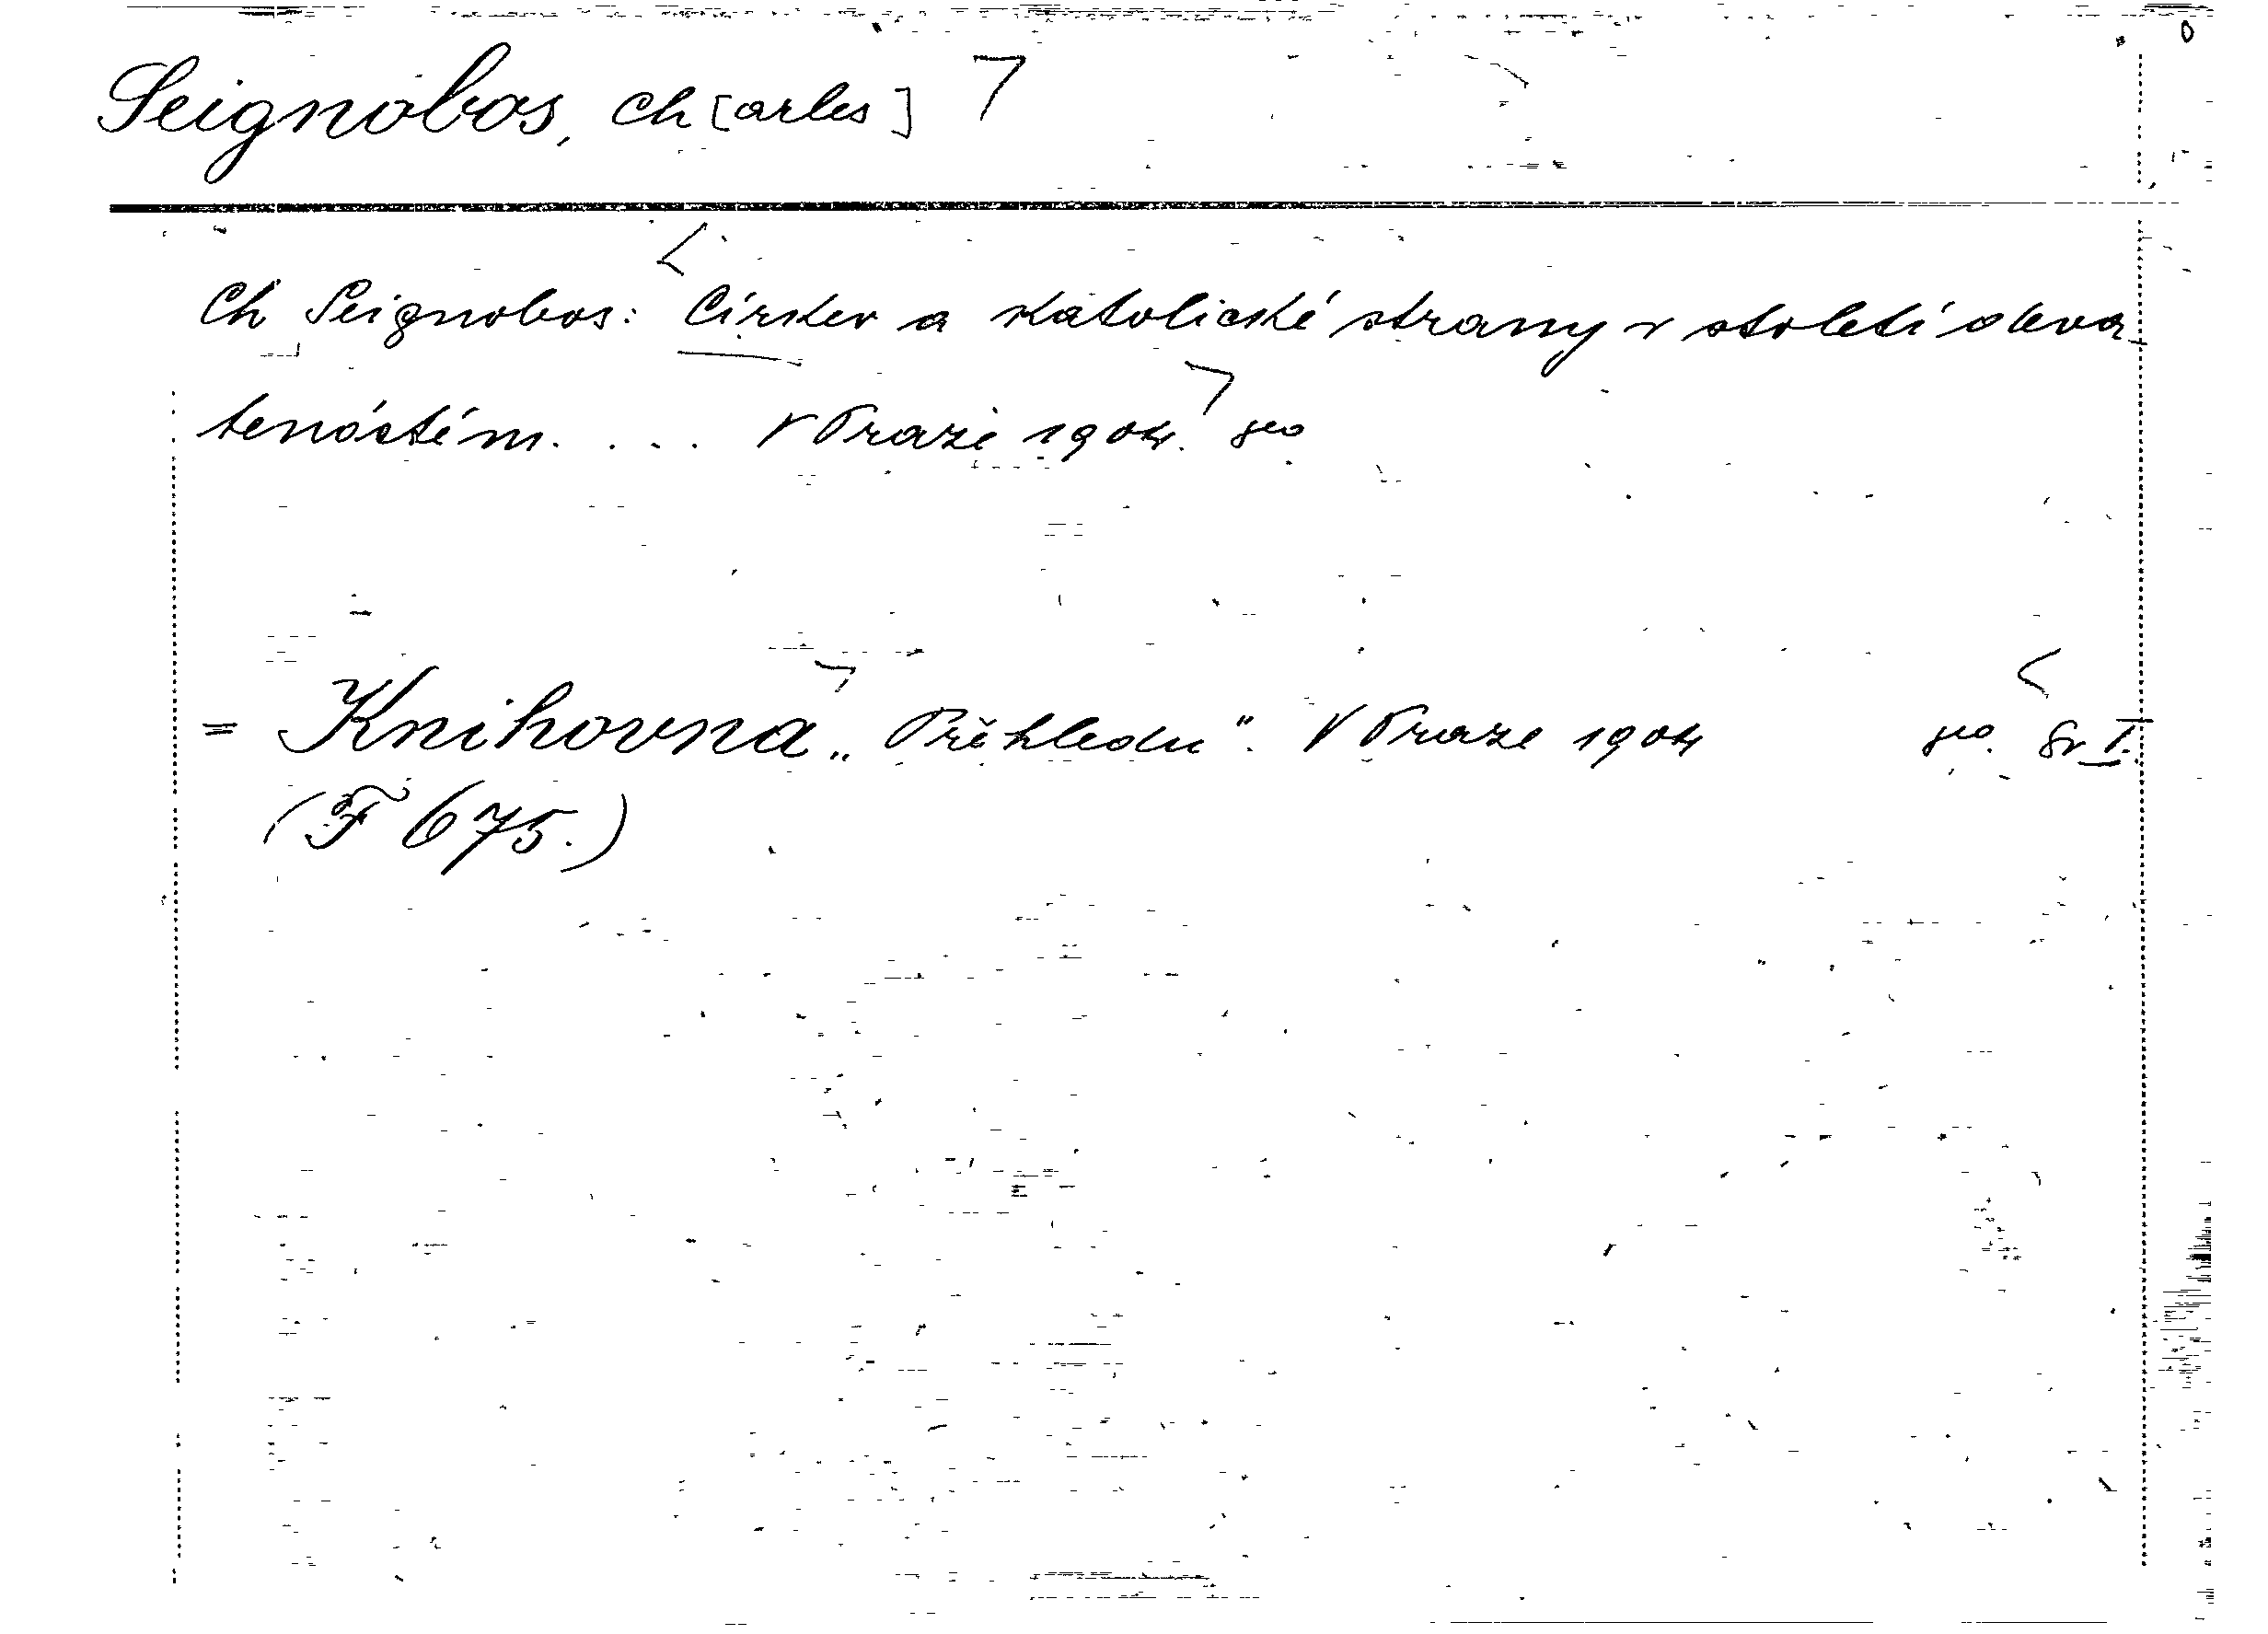 Seignobos, Ch[arles]
Ch Seignobos: Církev a katolické strany v století deva-
tenáctém. ... V Praze 1904. 8º
= Knihovna „Přehledu“. V Praze 1904 8º. Sv I.
(F 675.)